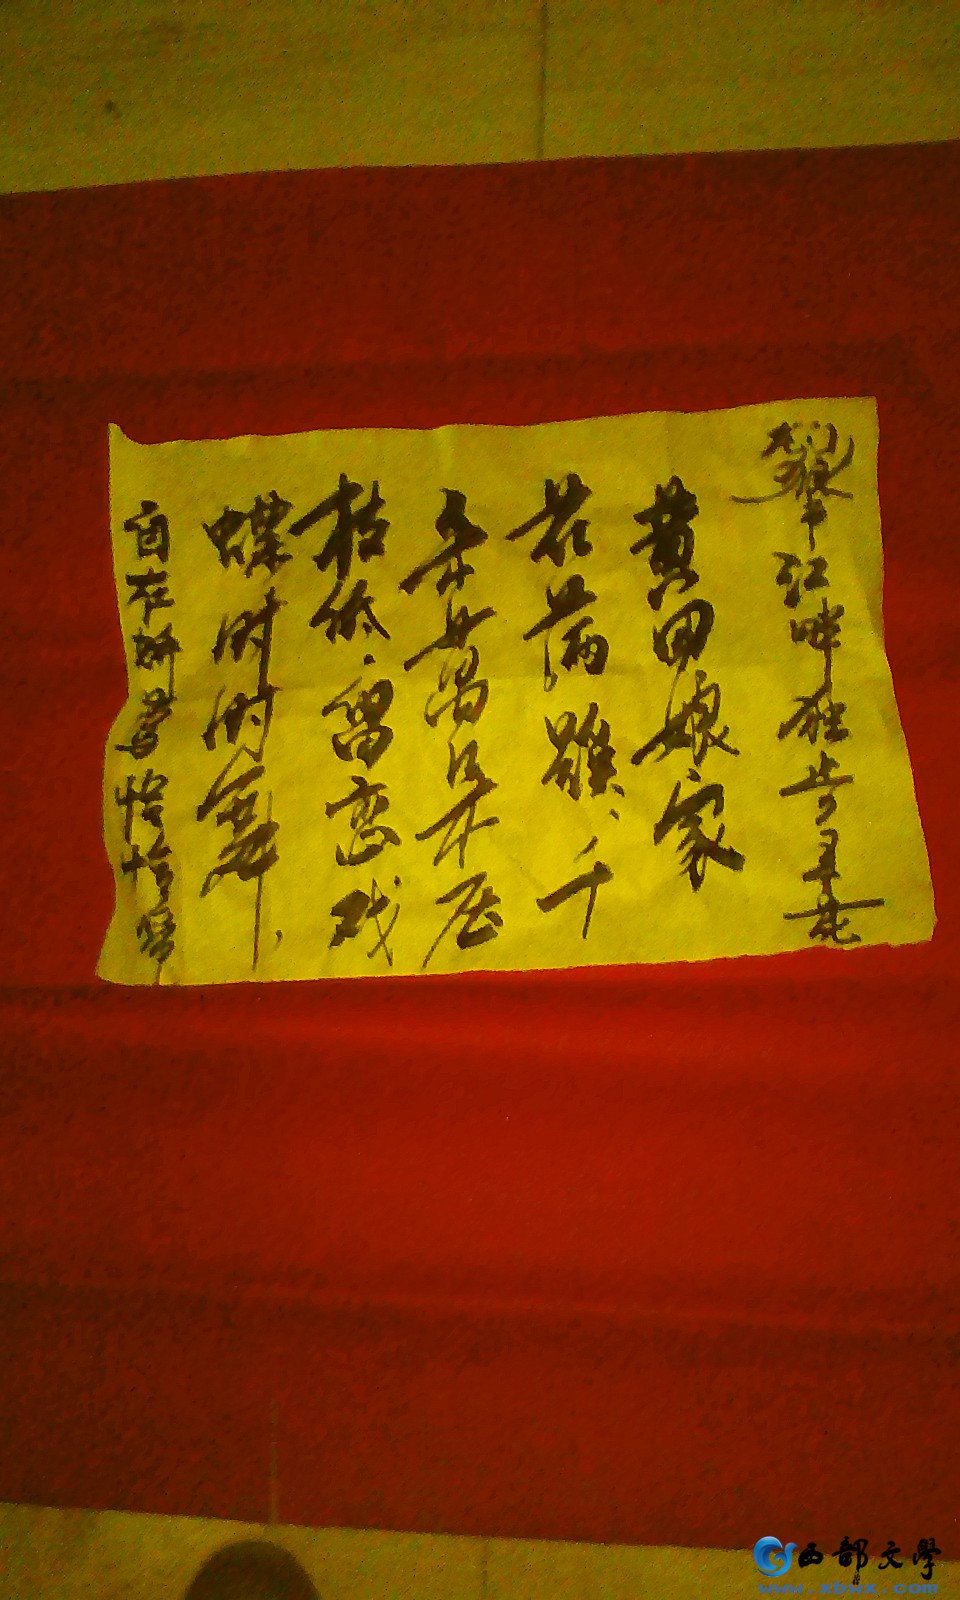 江畔独步寻花
黄四娘家
花满蹊、千
朵萬朵压
枝低.留恋戏
蝶时时舞,
自在娇莺恰恰啼
西部文學
www.xbwx.com